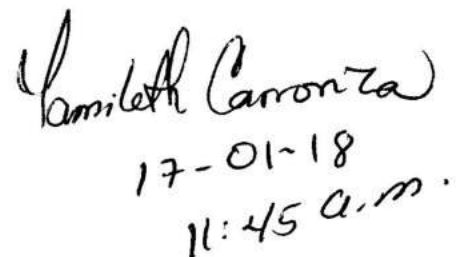 Yamileth Carronza
17-01-18
11:45 a.m.